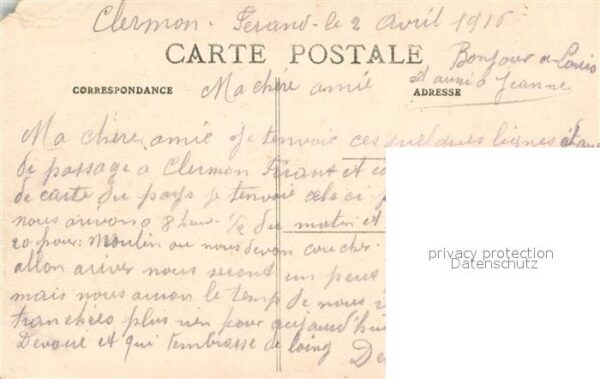 Clermon-Ferand-le 2 avril 1916
CARTE POSTALE
Bonjour a Louis
et aussi a Jeanne
CORRESPONDANCE
Ma chére amie
ADRESSE
Ma chére amie Je tenvoie ces quelques lignes
de passage a Clermon Ferant et
de carte du pays Je tenvoie cele ci
nous arivons a 8 heur 1/2 du matin et
20 pour Moulin ou nous devon coucher
allon ariver nous seront un peus
mais nous auron le temp de nous
tranchéés plus rien pour aujourd'hui
Devoué et qui tembrasse de loing
privacy protection
Datenschutz